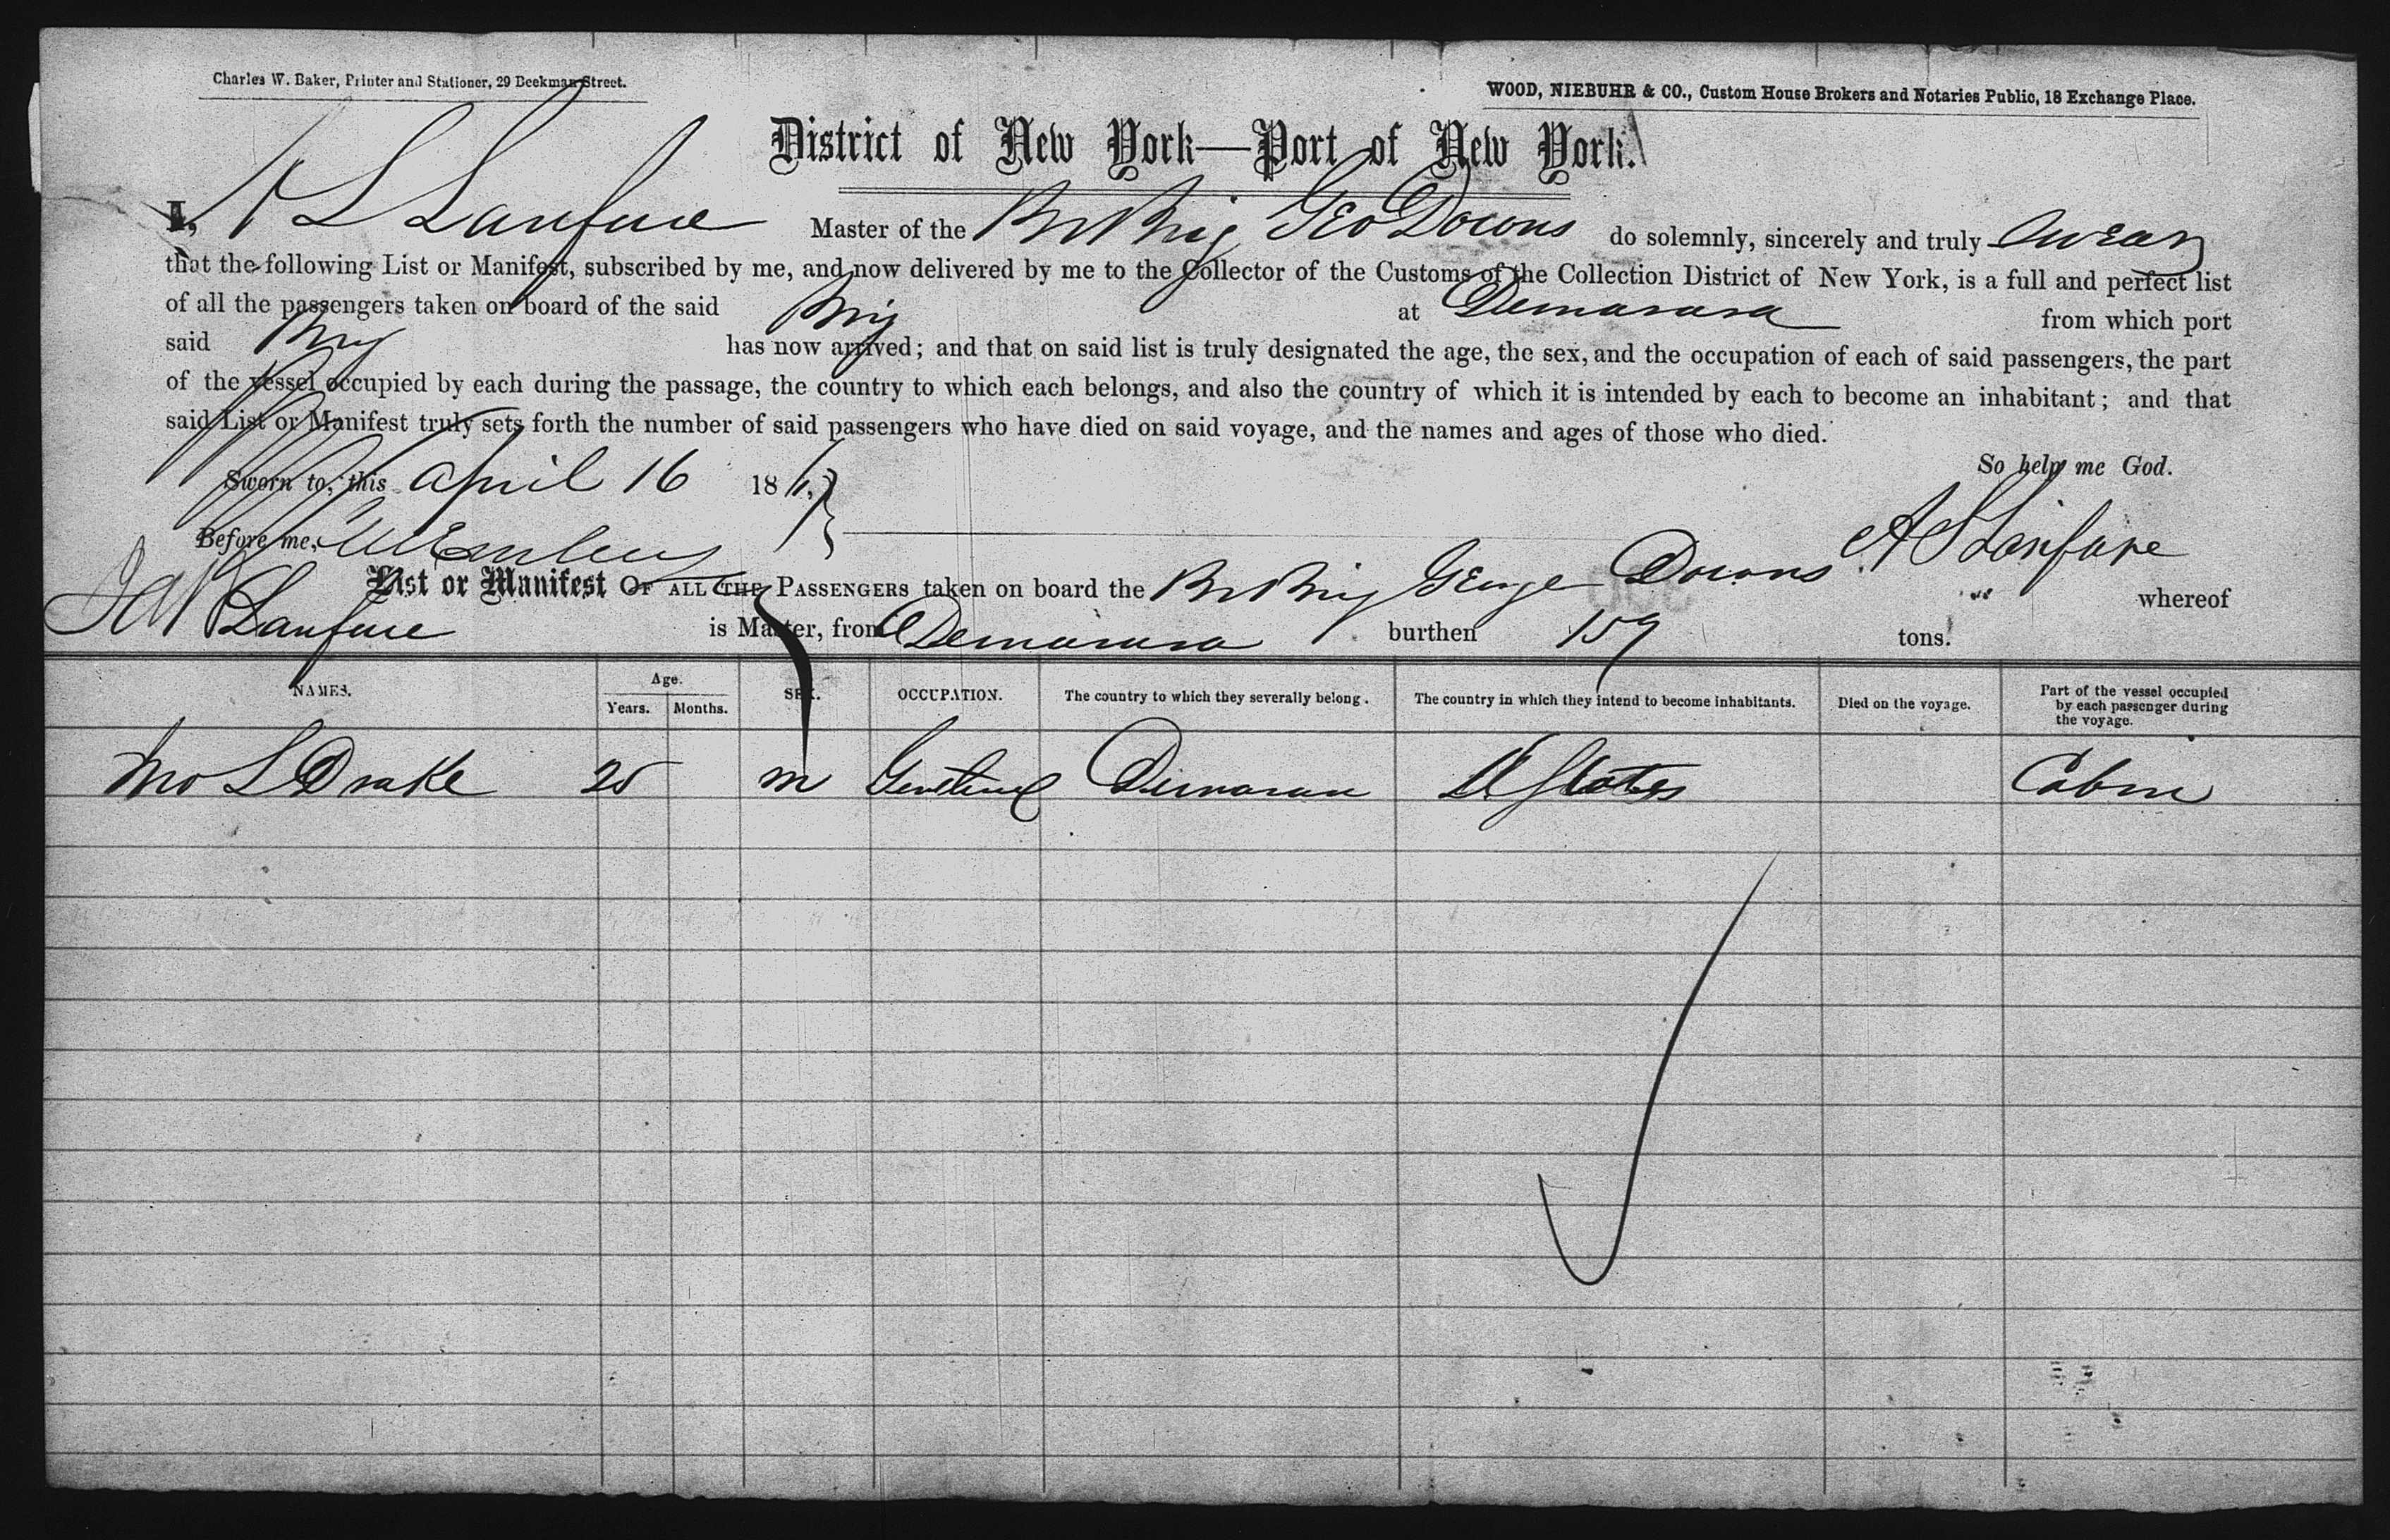 Charles W. Baker, Printer and Stationer, 29 Beekman Street.
WOOD, NIEBUHR & CO., Custom House Brokers and Notaries Public, 18 Exchange Place.
District of New York—Port of New York.
I, A S Lanfare Master of the Br Brig Geo Downs do solemnly, sincerely and truly swear
that the following List or Manifest, subscribed by me, and now delivered by me to the Collector of the Customs of the Collection District of New York, is a full and perfect list
of all the passengers taken on board of the said Brig at Demarara from which port
said Brig has now arrived; and that on said list is truly designated the age, the sex, and the occupation of each of said passengers, the part
of the vessel occupied by each during the passage, the country to which each belongs, and also the country of which it is intended by each to become an inhabitant; and that
said List or Manifest truly sets forth the number of said passengers who have died on said voyage, and the names and ages of those who died.
So help me God.
Sworn to, this April 16 18
Before me, A S Lanfare
List or Manifest OF ALL THE PASSENGERS taken on board the Br Brig George Downs whereof
Lanfare is Master, from Demarara burthen 159 tons.
NAMES. Age. Years. Months. SEX. OCCUPATION. The country to which they severally belong. The country in which they intend to become inhabitants. Died on the voyage. Part of the vessel occupied by each passenger during the voyage.
L Drake 25 m Demarara U States Cabin